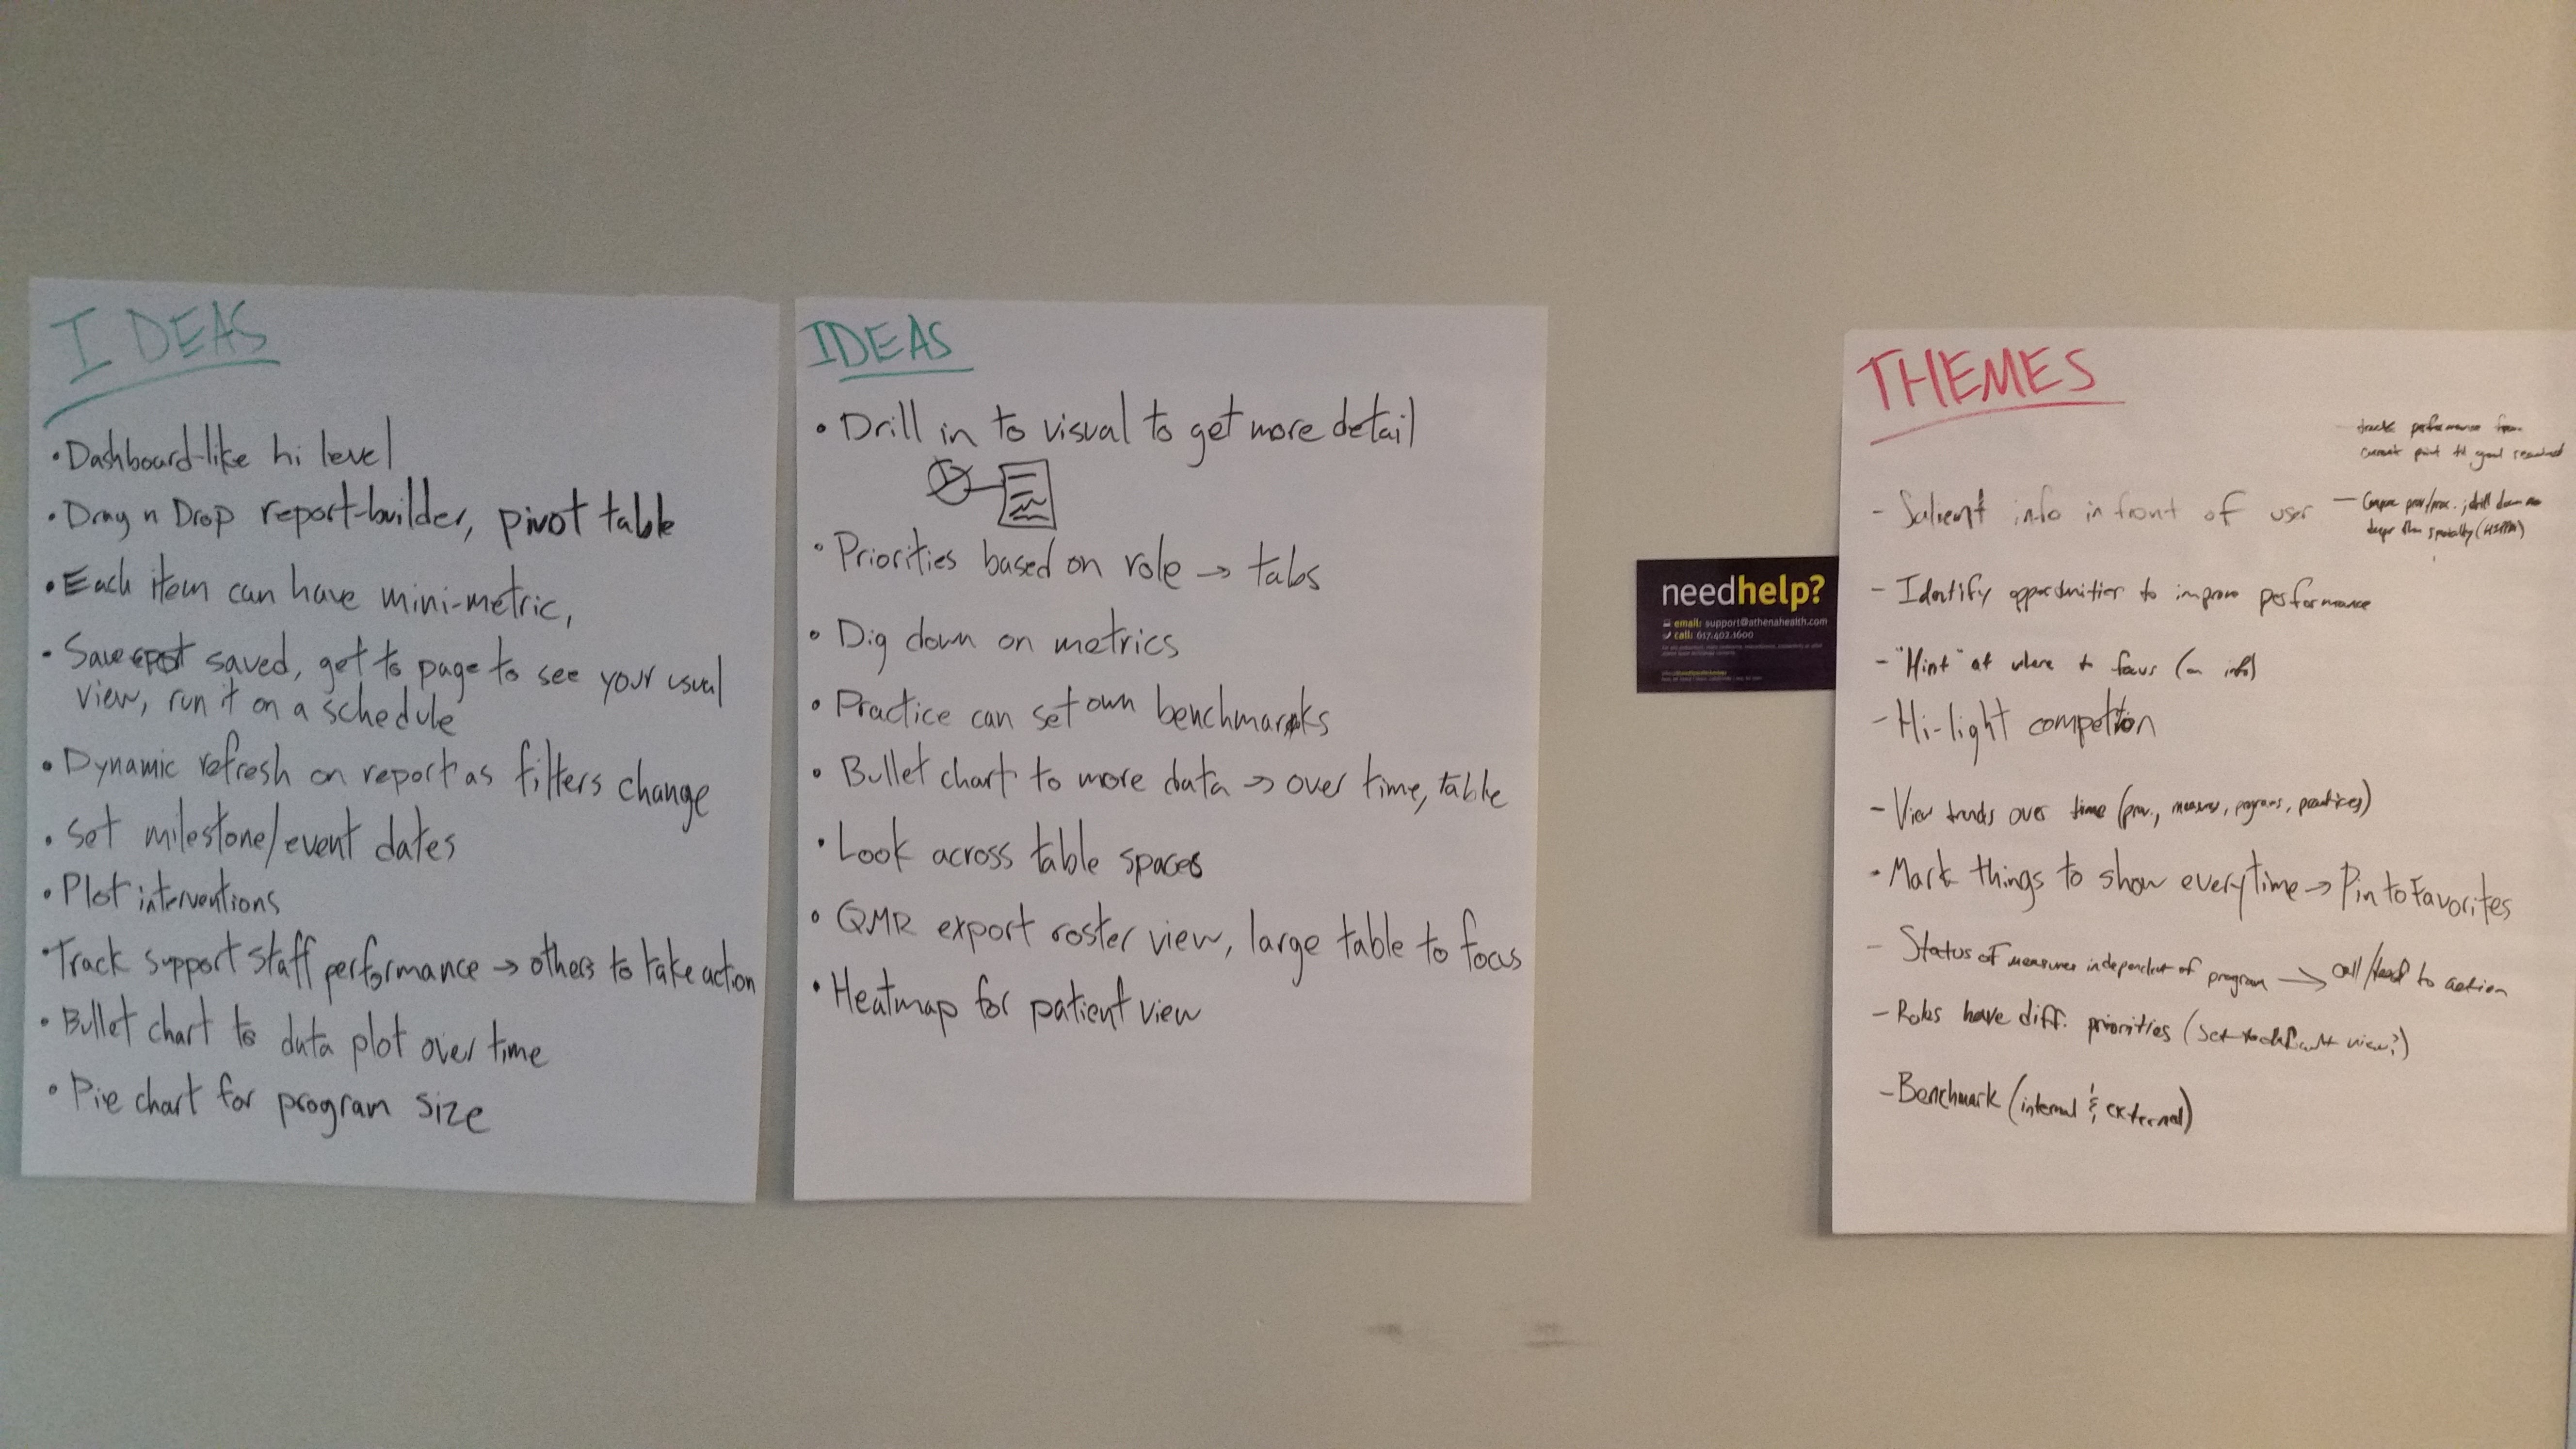 IDEAS
• Dashboard-like hi level
• Drag n Drop report-builder, pivot table
• Each item can have mini-metric,
• saved, get to page to see your usual
view, run it on a schedule
• Dynamic refresh on report as filters change
• Set milestone/event dates
• Plot interventions
• Track support staff performance → others to take action
• Bullet chart to data plot over time
• Pie chart for program size
IDEAS
• Drill in to visual to get more detail
• Priorities based on role → tabs
• Dig down on metrics
• Practice can set own benchmarks
• Bullet chart to more data → over time, table
• Look across table spaces
• QMR export roster view, large table to focus
• Heatmap for patient view
needhelp?
email: support@athenahealth.com
call: 617.402.1600
THEMES
track performance from
current point til goal reached
- Salient info in front of user
— Compare prov/prac. ; drill down no
deeper than specialty
- Identify opportunities to improve performance
- "Hint" at where to focus (on info)
- Hi-light competition
- View trends over time (prov., measures, programs, practices)
• Mark things to show everytime → Pin to Favorites
- Status of measures independent of program → call/lead to action
- Roles have diff. priorities (set to default view?)
- Benchmark (internal & external)